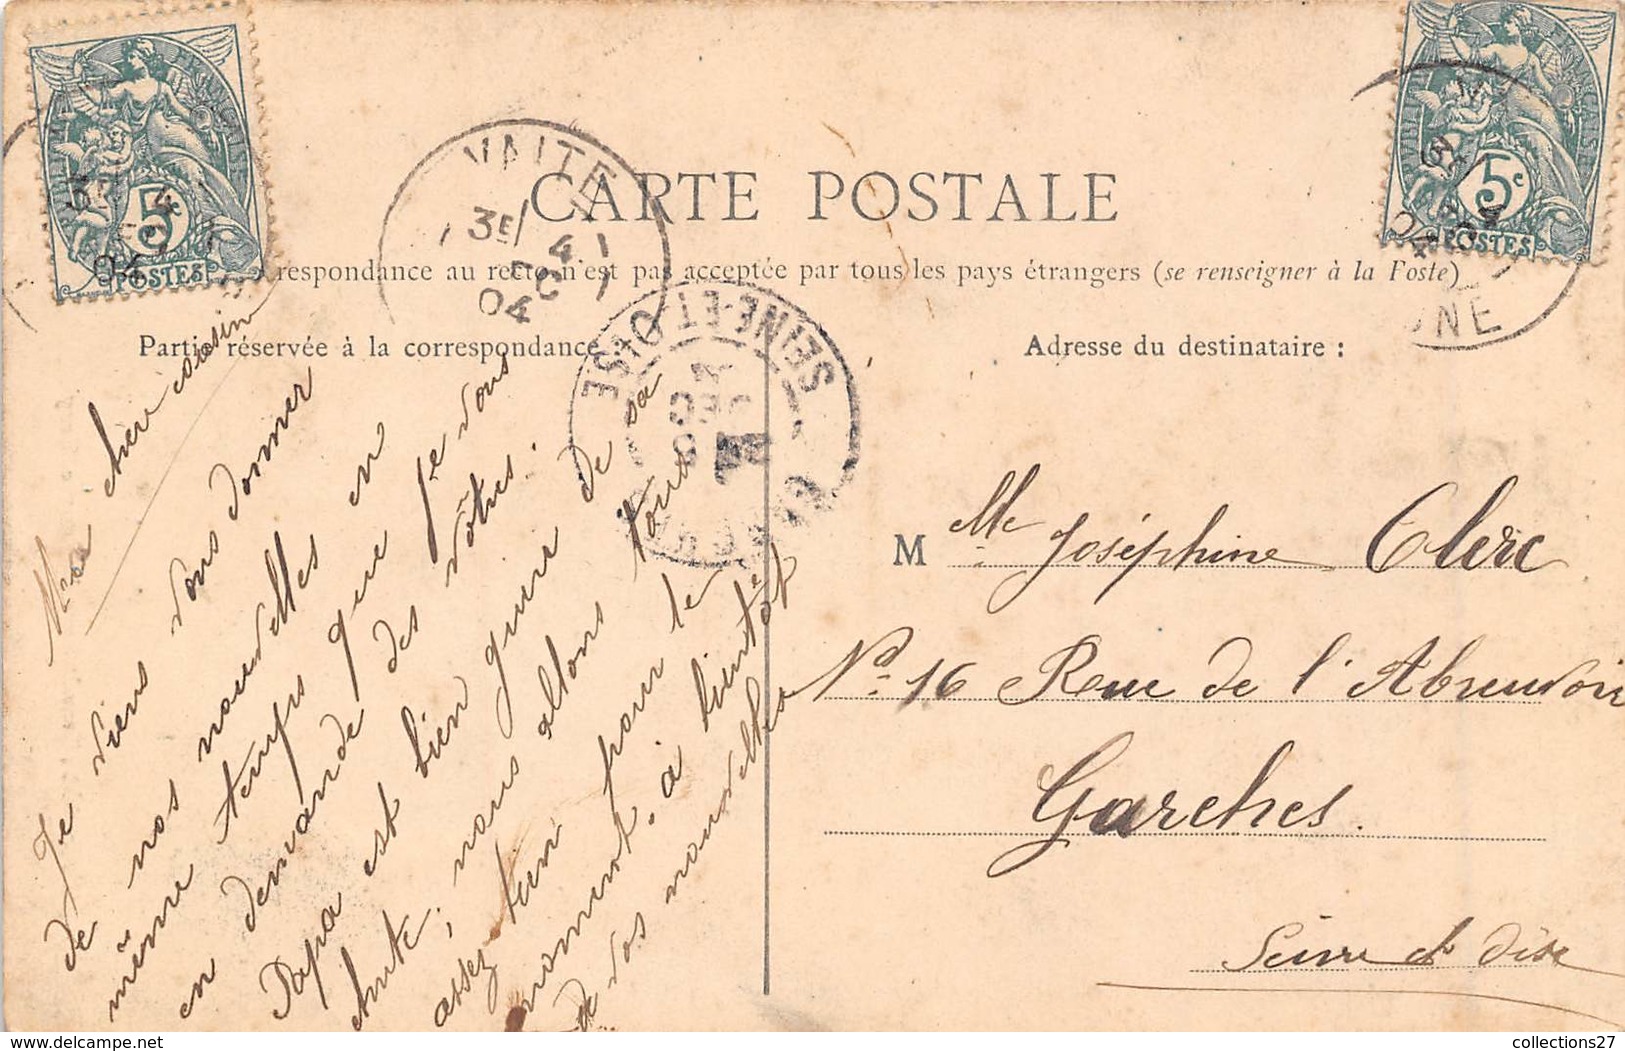 CARTE POSTALE
respondance au recto n'est pas acceptée par tous les pays étrangers (se renseigner à la Poste)
Partie réservée à la correspondance :
Adresse du destinataire :
5c
POSTES
5c
POSTES
SEINE-ET-OISE
cher cousin
Je viens vous donner
de nos nouvelles en
même temps que Je vous
en demande des vôtres.
Papa est bien guéri de sa
chute, nous allons tous
assez bien pour le
moment. à bientôt
de vos nouvelles
M elle Joséphine Clerc
No. 16 Rue de l'Abreuvoir
Garches.
Seine et Oise
collections27